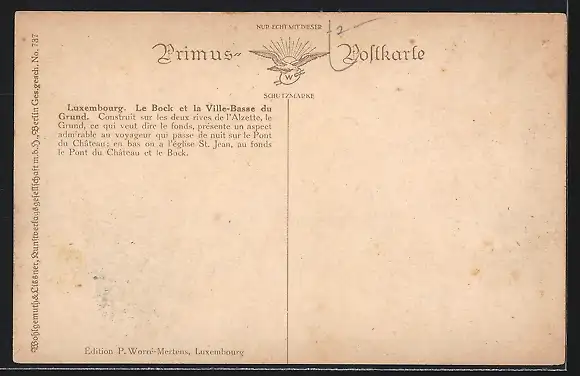 NUR ECHT MIT DIESER
Primus- Postkarte
W
SCHUTZMARKE
-2-
Luxembourg. Le Bock et la Ville-Basse du
Grund. Construit sur les deux rives de l'Alzette, le
Grund, ce qui veut dire le fonds, présente un aspect
admirable au voyageur qui passe de nuit sur le Pont
du Château; en bas on a l'église St. Jean, au fonds
le Pont du Château et le Bock.
Wohlgemuth & Lissner, Kunstverlagsgesellschaft m.b.H., Berlin Ges. gesch. No. 737
Édition P. Worré-Mertens, Luxembourg